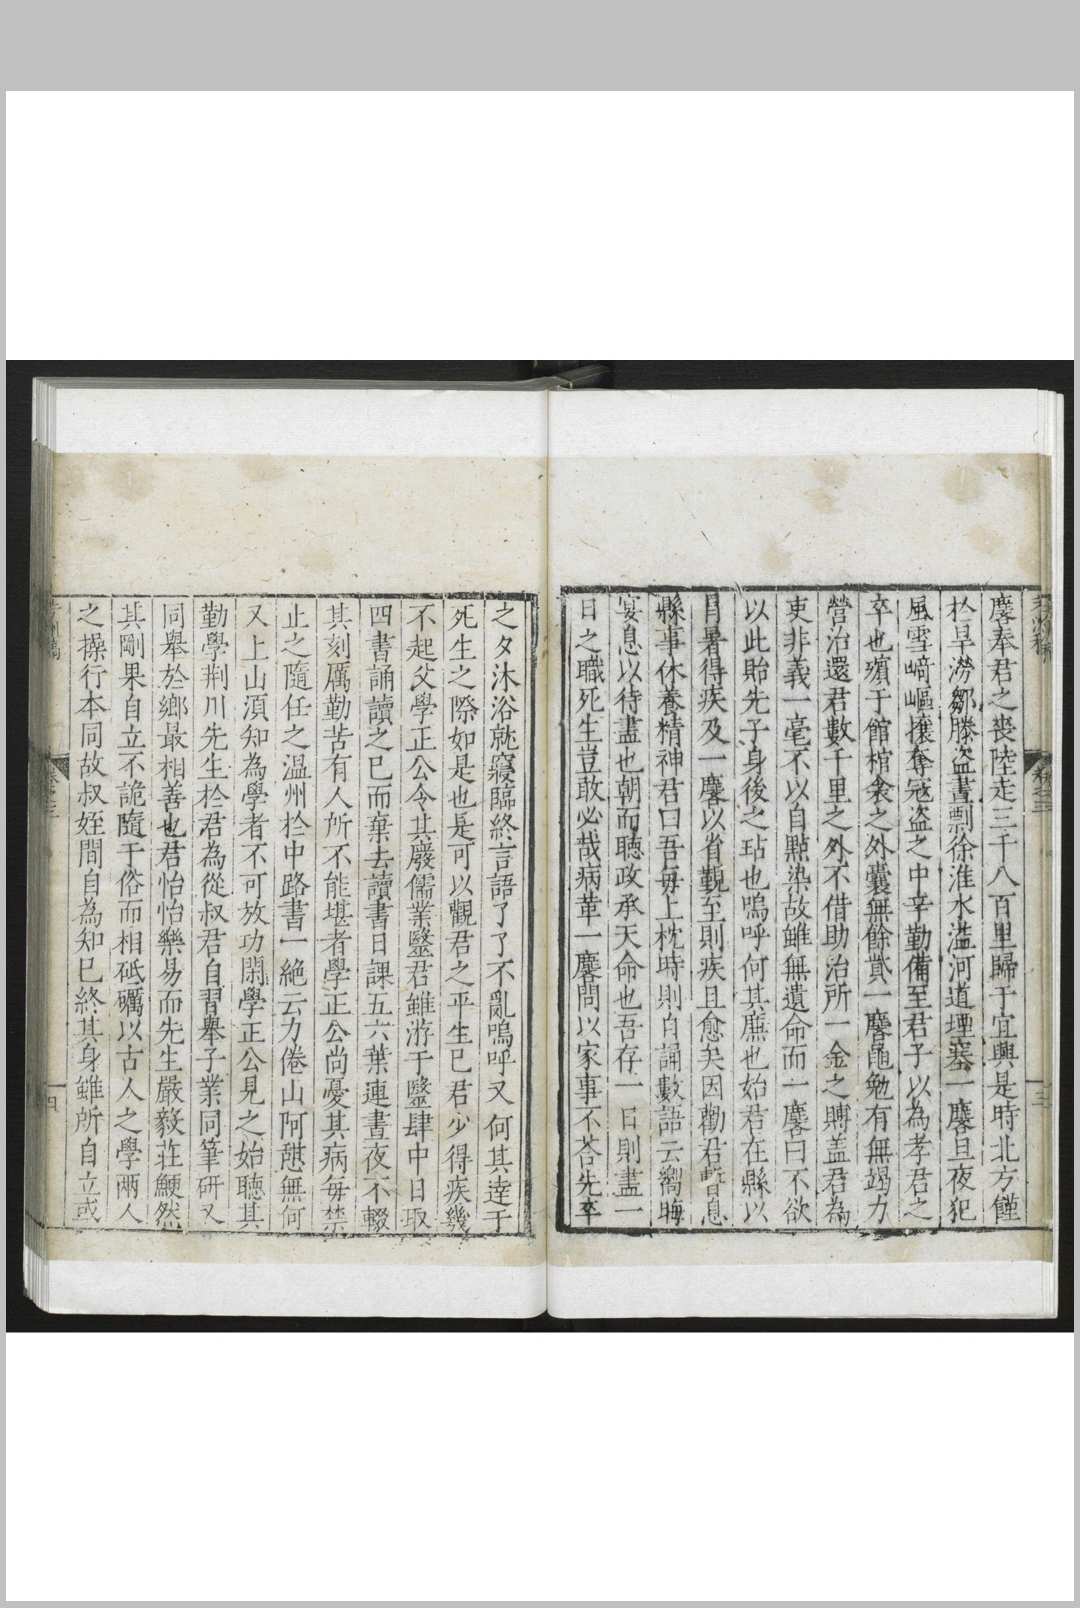 麐奉君之喪陸走三千八百里歸于宜興是時北方饉
於旱澇鄒滕盜晝剽徐淮水溢河道堙塞一麐旦夜犯
風雪﨑嶇攘奪冦盜之中辛勤備至君子以為孝君之
卒也殯于館棺衾之外囊無餘貲一麐黽勉有無竭力
營治還君數千里之外不借助治所一金之賻盖君為
吏非義一毫不以自㸃染故雖無遺命而一麐曰不欲
以此貽先子身後之玷也嗚呼何其廉也始君在縣以
冐暑得疾及一麐以省覲至則疾且愈矣因勸君暫息
縣事休養精神君曰吾每上枕時則自誦數語云嚮晦
宴息以待盡也朝而聽政承天命也吾存一日則盡一
日之職死生豈敢必哉病革一麐問以家事不荅先卒
之夕沐浴就寢臨終言語了了不亂嗚呼又何其逹于
死生之際如是也是可以觀君之平生已君少得疾幾
不起父學正公令其廢儒業毉君雖游于毉肆中日取
四書誦讀之已而棄去讀書日課五六葉連晝夜不輟
其刻厲勤苦有人所不能堪者學正公尚憂其病每禁
止之隨任之温州於中路書一絶云力倦山阿憇無何
又上山湏知為學者不可放功閑學正公見之始聽其
勤學荆川先生於君為從叔君自習舉子業同筆研又
同舉於鄉最相善也君怡怡樂易而先生嚴毅荘鯁然
其剛果自立不詭隨于俗而相砥礪以古人之學兩人
之操行本同故叔姪間自為知已終其身雖所自立或